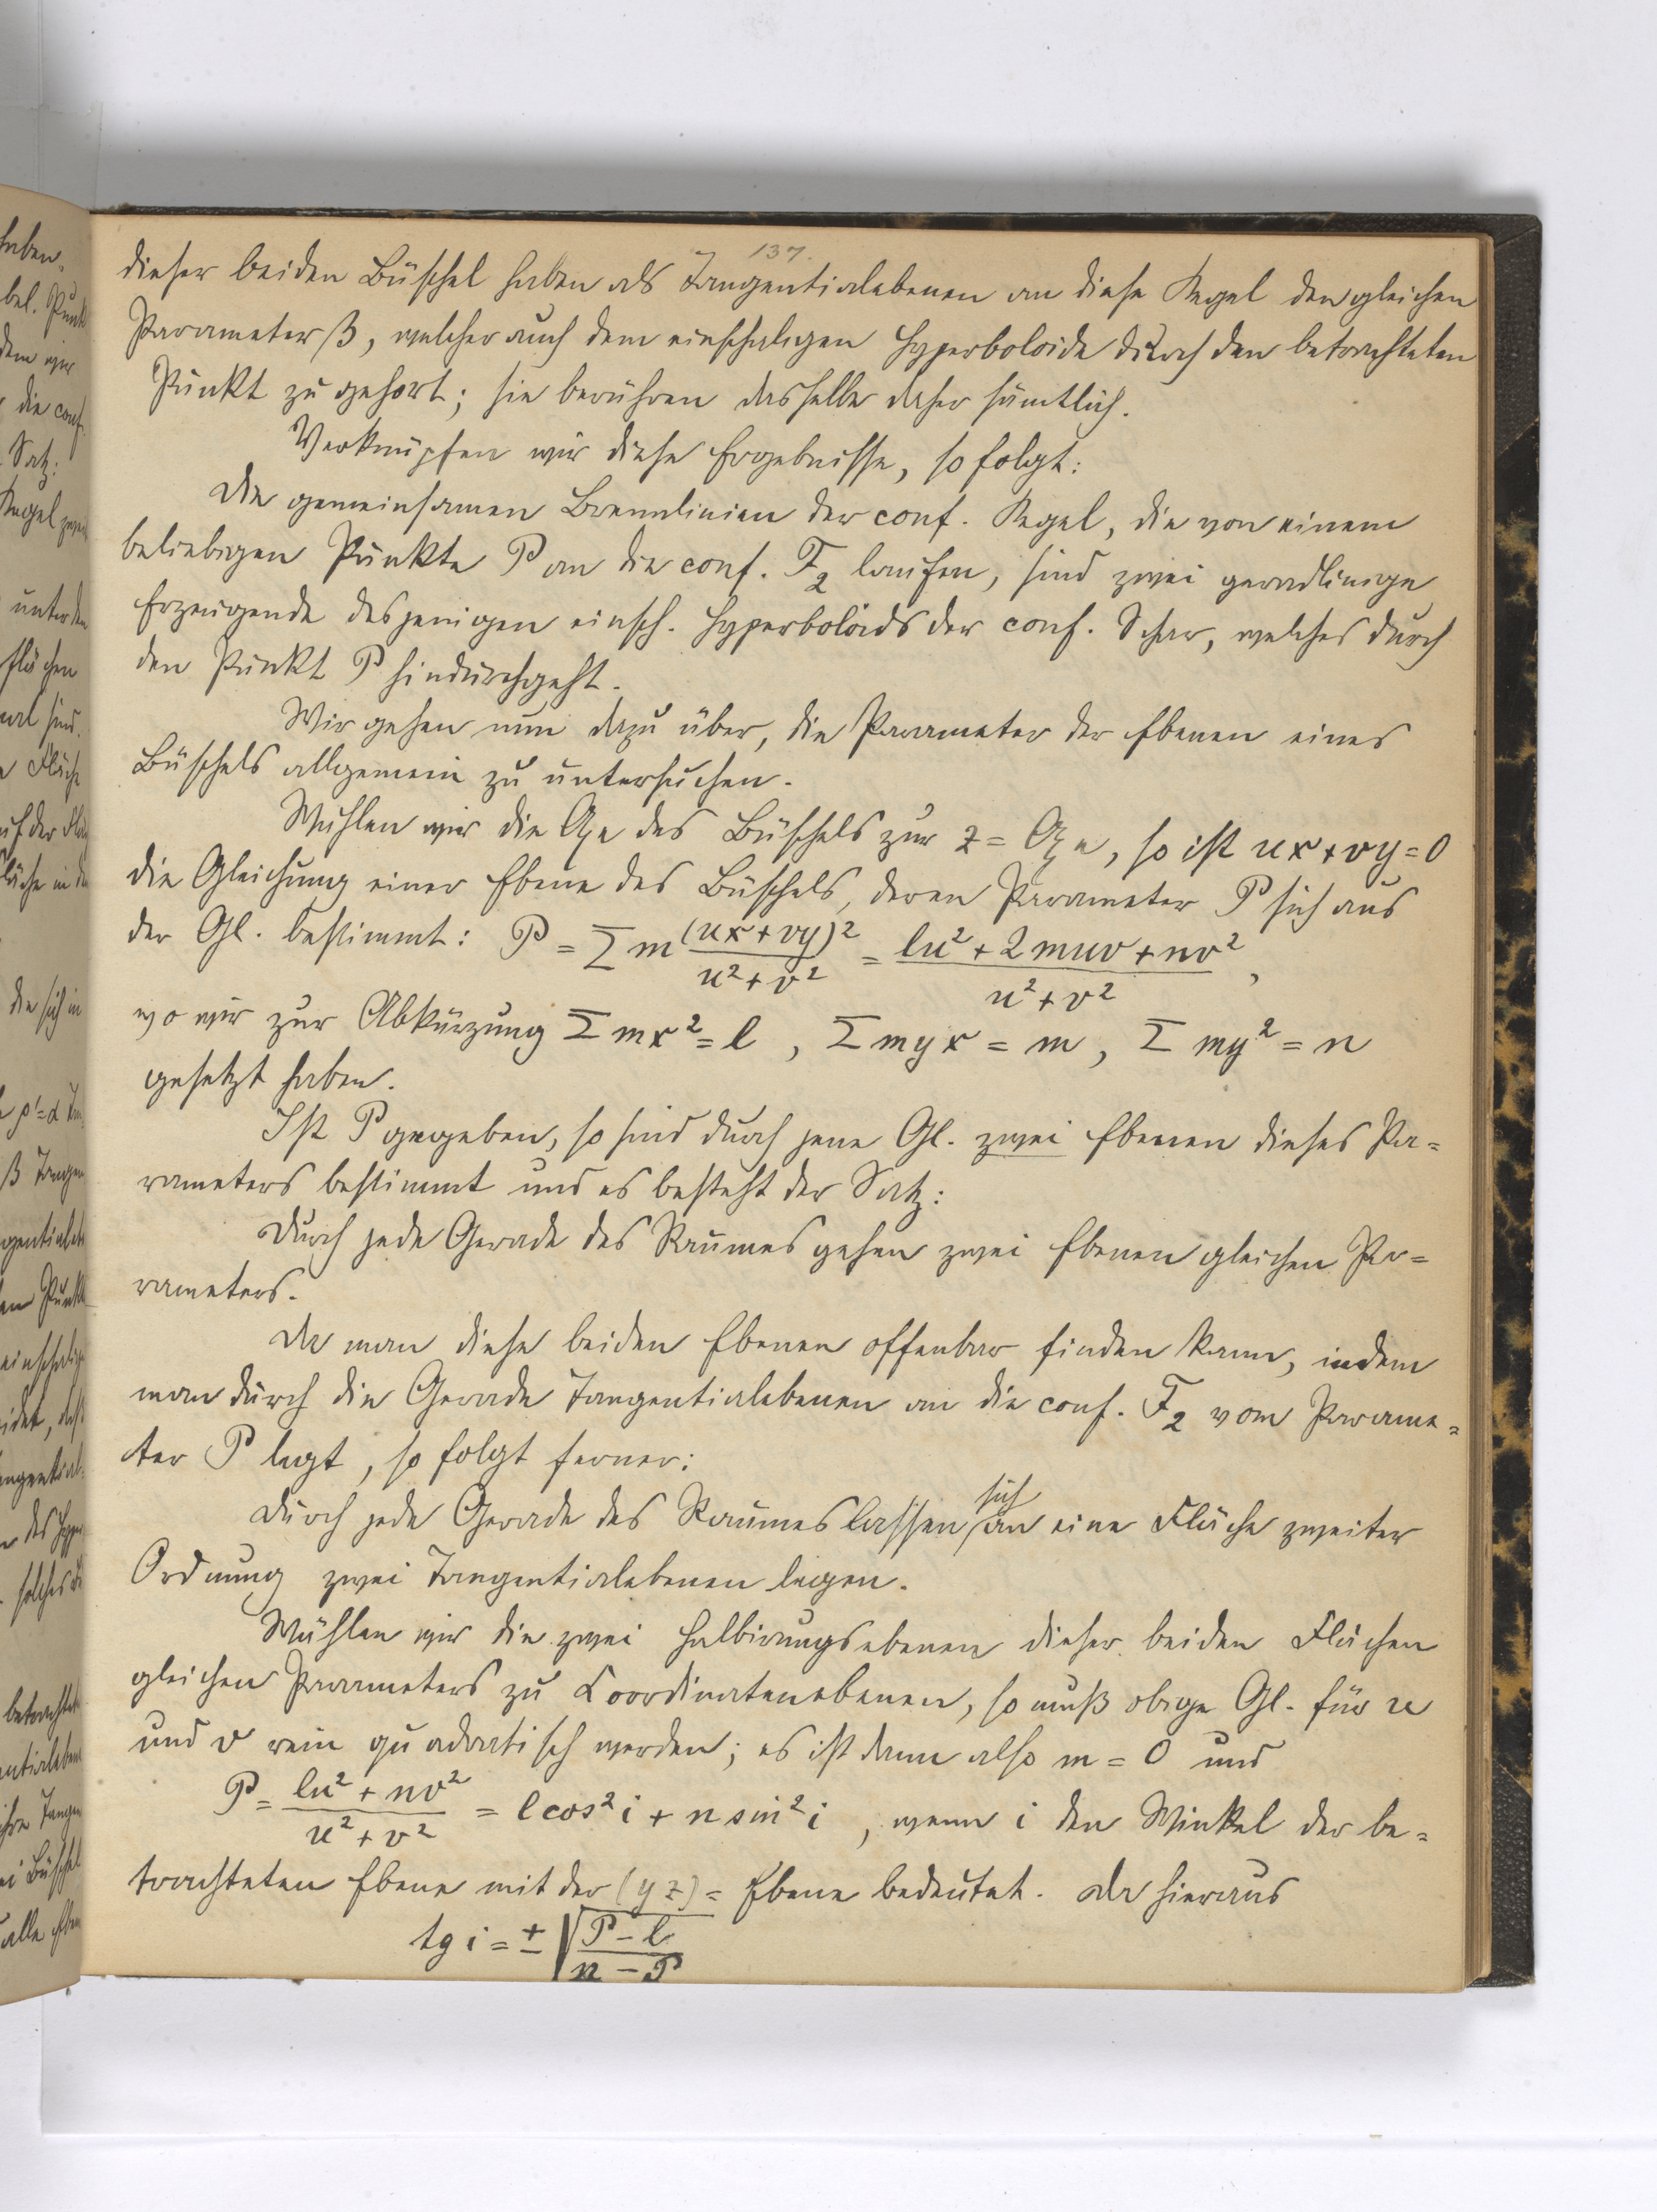 137.
dieser beiden Büschel haben als Tangentialebenen an diese Kegel den gleichen
Parameter ß, welcher auch dem einschaligen Hyperboloide durch den betrachteten
Punkt zu gehört; sie berühren dasselbe daher sämtlich.
Verknüpfen wir diese Ergebnisse, so folgt:
Die gemeinsamen Brennlinien der conf. Kegel, die von einem
beliebigen Punkte P an die conf. F₂ laufen, sind zwei geradlinige
Erzeugende desjenigen einsch. Hyperboloids der conf. Schar, welches durch
den Punkt P hindurchgeht.
Wir gehen nun dazu über, die Parameter der Ebenen eines
Büschels allgemein zu untersuchen.
Wählen wir die Axe des Büschels zur z = Axe, so ist ux + vy = 0
die Gleichung einer Ebene des Büschels, deren Parameter P sich aus
der Gl. bestimmt: P = Σ m (ux + vy)² / (u² + v²) = (lu² + 2muv + nv²) / (u² + v²),
wo wir zur Abkürzung Σ mx² = l, Σ myx = m, Σ my² = n
gesetzt haben.
Ist P gegeben, so sind durch jene Gl. zwei Ebenen dieses Pa=
rameters bestimmt und es besteht der Satz:
Durch jede Gerade des Raumes gehen zwei Ebenen gleichen Pa=
rameters.
Da man diese beiden Ebenen offenbar finden kann, indem
man durch die Gerade Tangentialebenen an die conf. F₂ vom Parame=
ter P legt, so folgt ferner:
Durch jede Gerade des Raumes lassen sich an eine Fläche zweiter
Ordnung zwei Tangentialebenen legen.
Wählen wir die zwei Halbirungsebenen dieser beiden Flächen
gleichen Parameters zu Coordinatenebenen, so muß obige Gl. für u
und v rein quadratisch werden; es ist dann also m = 0 und
P = (lu² + nv²) / (u² + v²) = l cos² i + n sin² i, wenn i den Winkel der be=
trachteten Ebene mit der (yz) = Ebene bedeutet. Da hieraus
tg i = ± √((P − l) / (n − P))